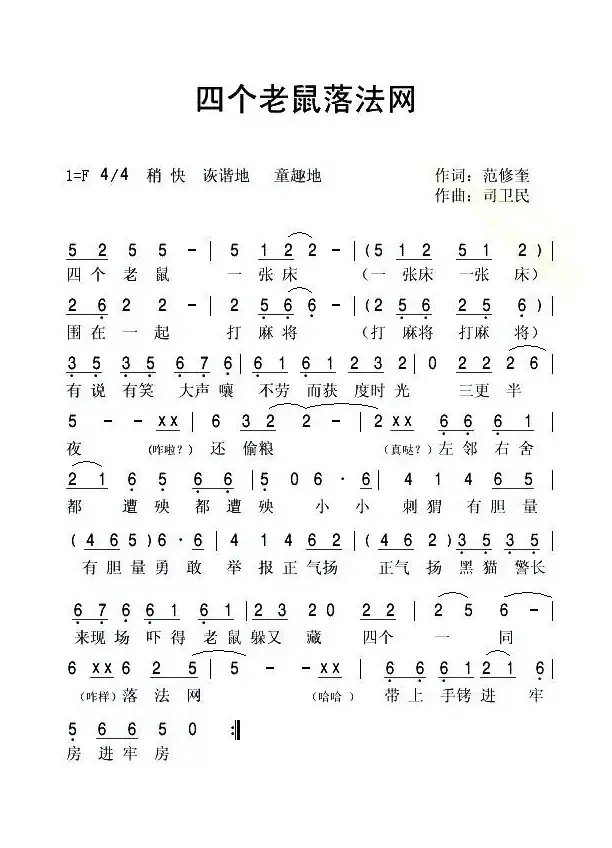 四个老鼠落法网
1=F 4/4 稍 快 诙谐地 童趣地 作词：范修奎
作曲：司卫民
5 2 5 5 - | 5 1 2 2 - | (5 1 2 5 1 2 ) |
四 个 老 鼠 一 张 床 （一 张床 一张 床）
2 6 2 2 - | 2 5 6 6 - | (2 5 6 2 5 6 ) |
围 在 一 起 打 麻 将 （打 麻将 打麻 将）
3 5 3 5 6 7 6 | 6 1 6 1 2 3 2 | 0 2 2 2 6 |
有 说 有笑 大声 嚷 不劳 而获 度时 光 三更 半
5 - - x x | 6 3 2 2 - | 2 x x 6 6 6 1 |
夜 （咋啦？）还 偷粮 （真哒？）左 邻 右 舍
2 1 6 5 6 6 | 5 0 6 · 6 | 4 1 4 6 5 |
都 遭 殃 都 遭 殃 小 小 刺 猬 有 胆 量
( 4 6 5 ) 6 · 6 | 4 1 4 6 2 | ( 4 6 2 ) 3 5 3 5 |
有 胆 量 勇 敢 举 报 正 气扬 正气 扬 黑 猫 警长
6 7 6 6 1 6 1 | 2 3 2 0 2 2 | 2 5 6 - |
来现 场 吓 得 老 鼠 躲又 藏 四个 一 同
6 x x 6 2 5 | 5 - - x x | 6 6 6 1 2 1 6 |
（咋样）落 法 网 （哈哈 ） 带 上 手铐 进 牢
5 6 6 5 0 :‖
房 进 牢 房